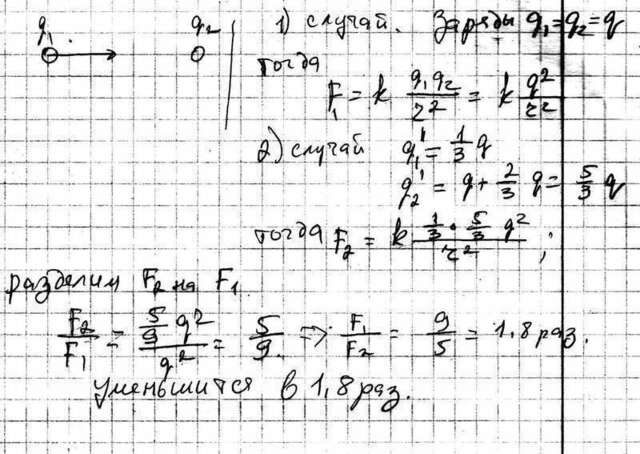 q₁ q₂
1) случай. Заряды q₁=q₂=q
тогда
F₁ = k q₁q₂/r² = k q²/r²
2) случай q₁' = 1/3 q
q₂' = q + 2/3 q = 5/3 q
тогда F₂ = k (1/3 · 5/3 q²)/r² ;
разделим F₂ на F₁
F₂/F₁ = (5/9 q²)/q² = 5/9. => F₁/F₂ = 9/5 = 1,8 раз.
уменьшится в 1,8 раз.